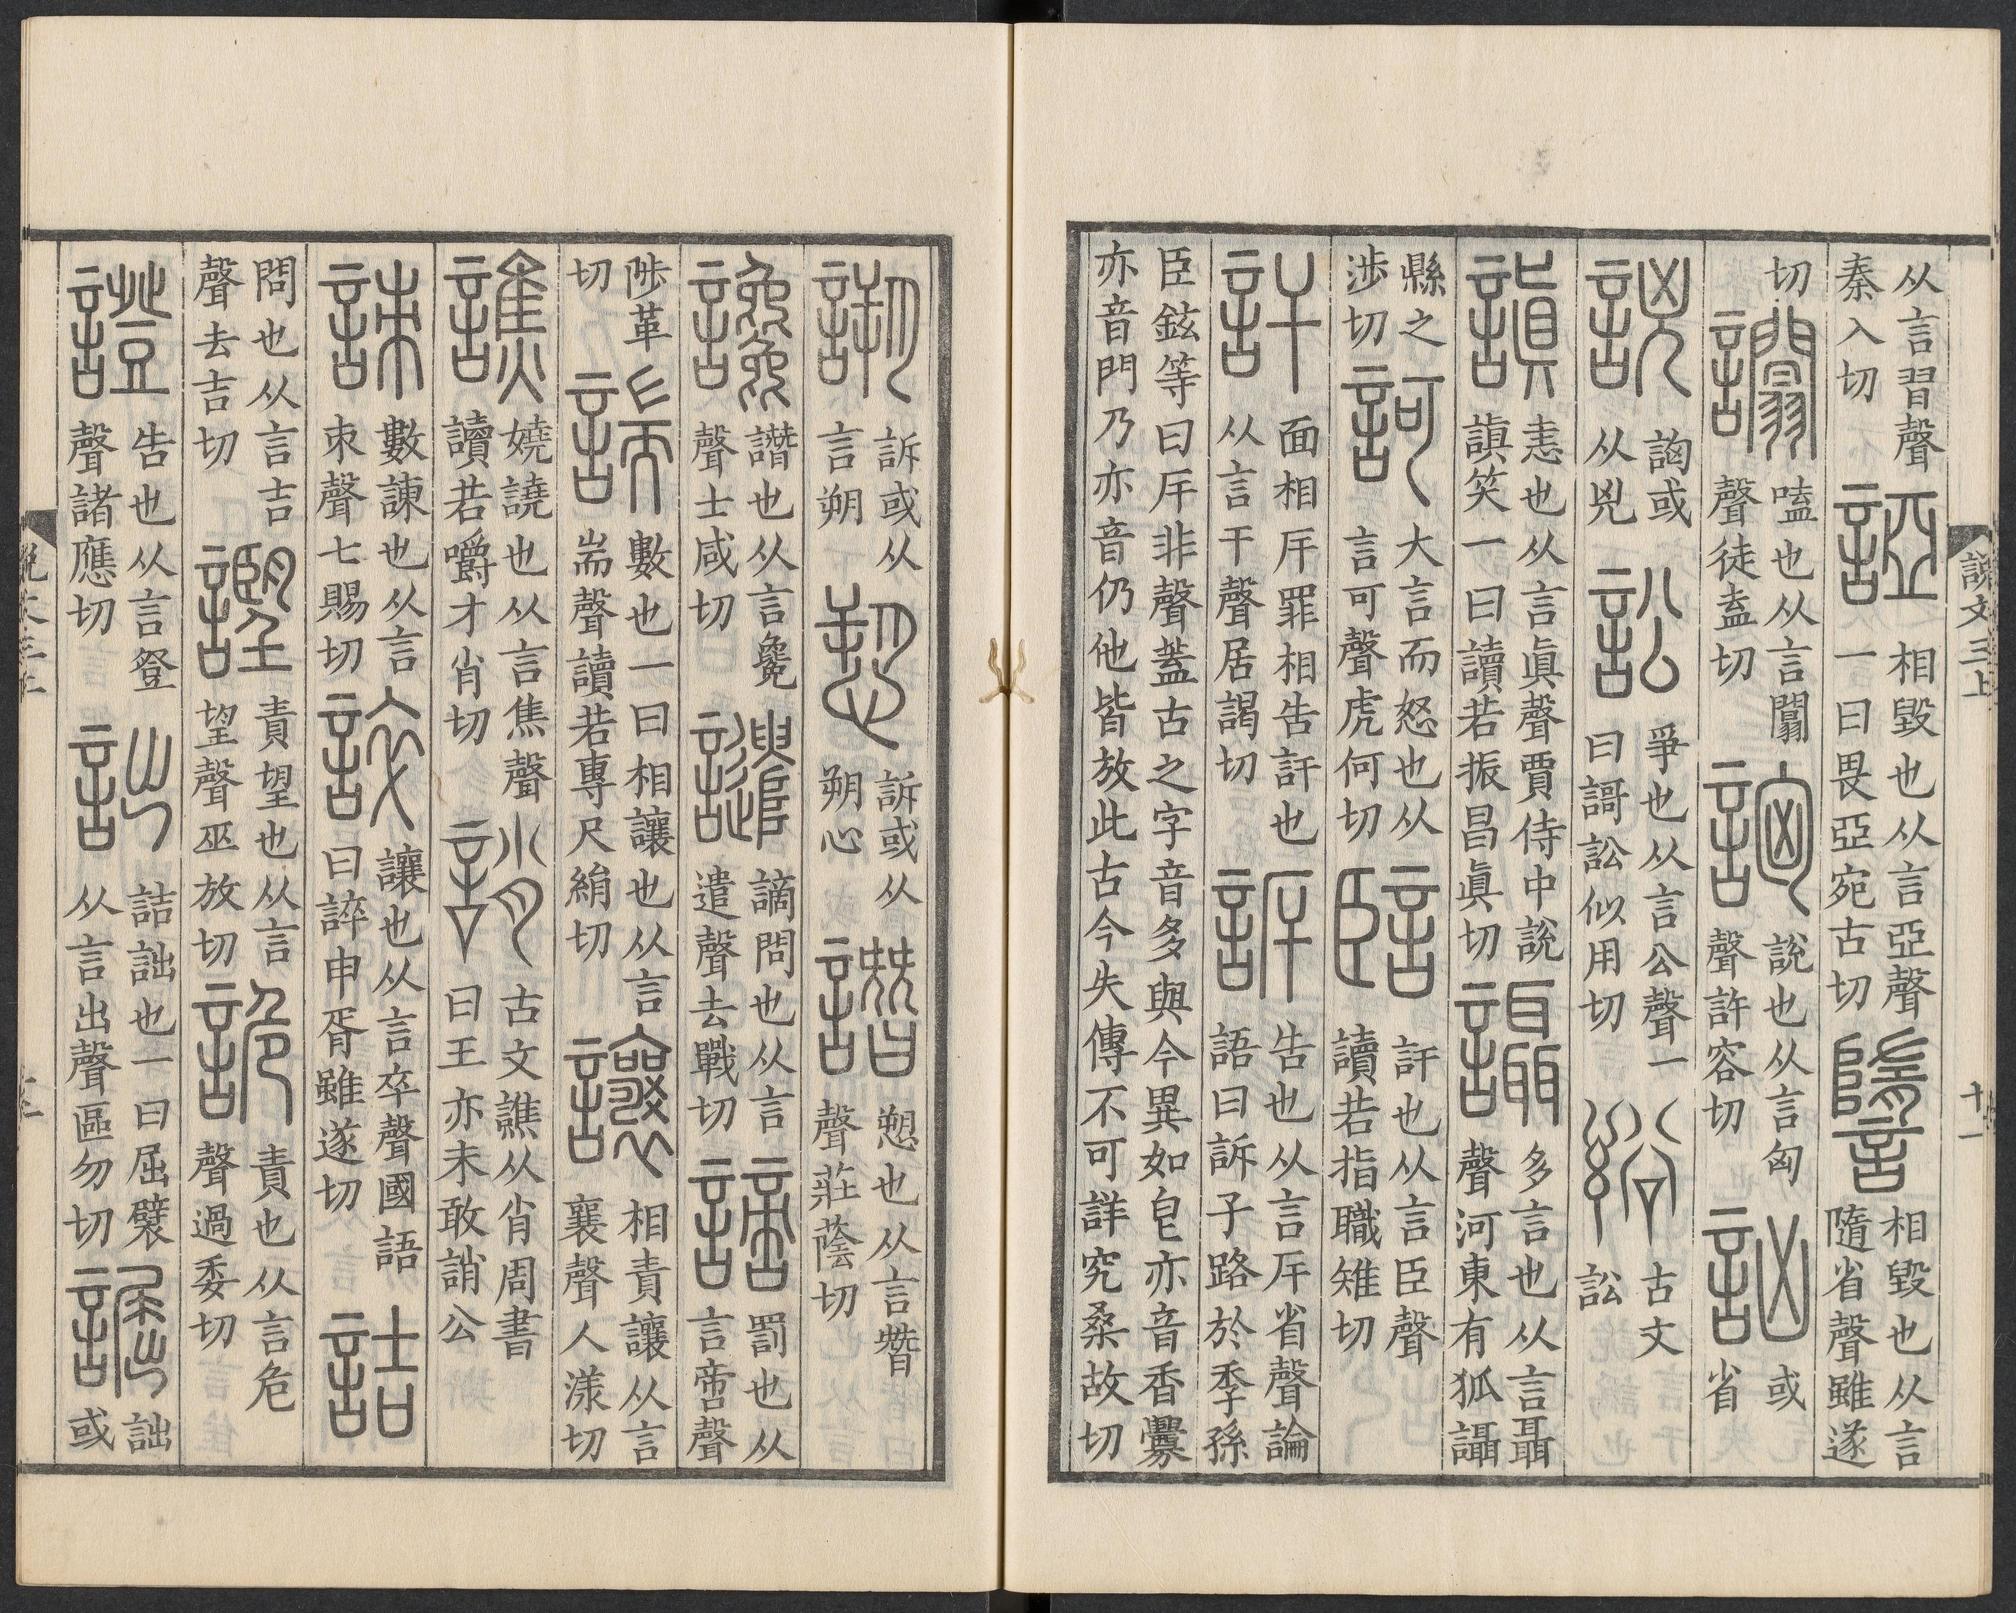 从言習聲
秦入切
䛩
相毀也从言亞聲
一曰畏亞宛古切
䜐
相毀也从言
隨省聲雖遂
切
䜚
嗑也从言闒
聲徒盍切
詾
說也从言匈
聲許容切
訩
或
省
𧧗
詾或
从兇
訟
爭也从言公聲一
曰謌訟似用切
古文
訟
謓
恚也从言眞聲賈侍中說
謓笑一曰讀若振昌眞切
讘
多言也从言聶
聲河東有狐讘
縣之
涉切
訶
大言而怒也从
言可聲虎何切
訐也从言臣聲
讀若指職雉切
訐
面相㡿罪相告訐也
从言干聲居謁切
訴
告也从言㡿省聲論
語曰訴子路於季孫
臣鉉等曰㡿非聲蓋古之字音多與今異如皀亦音香釁
亦音門乃亦音仍他皆放此古今失傳不可詳究桑故切
說文三上
十一
𧪜
訴或从
言朔
愬
訴或从
朔心
譖
愬也从言朁
聲莊蔭切
讒
譖也从言毚
聲士咸切
譴
謫問也从言
遣聲去戰切
謫
罰也从
言啻聲
陟革
切
諯
數也一曰相讓也从言
耑聲讀若專尺絹切
讓
相責讓从言
襄聲人漾切
譙
嬈譊也从言焦聲
讀若嚼才肖切
誚
古文譙从肖周書
曰王亦未敢誚公
諫
數諫也从言
朿聲七賜切
誶
讓也从言卒聲國語
曰誶申胥雖遂切
詰
問也从言吉
聲去吉切
謹
責望也从言
望聲巫放切
詭
責也从言危
聲過委切
證
告也从言登
聲諸應切
詘
詰詘也一曰屈襞
从言出聲區勿切
誳
詘
或